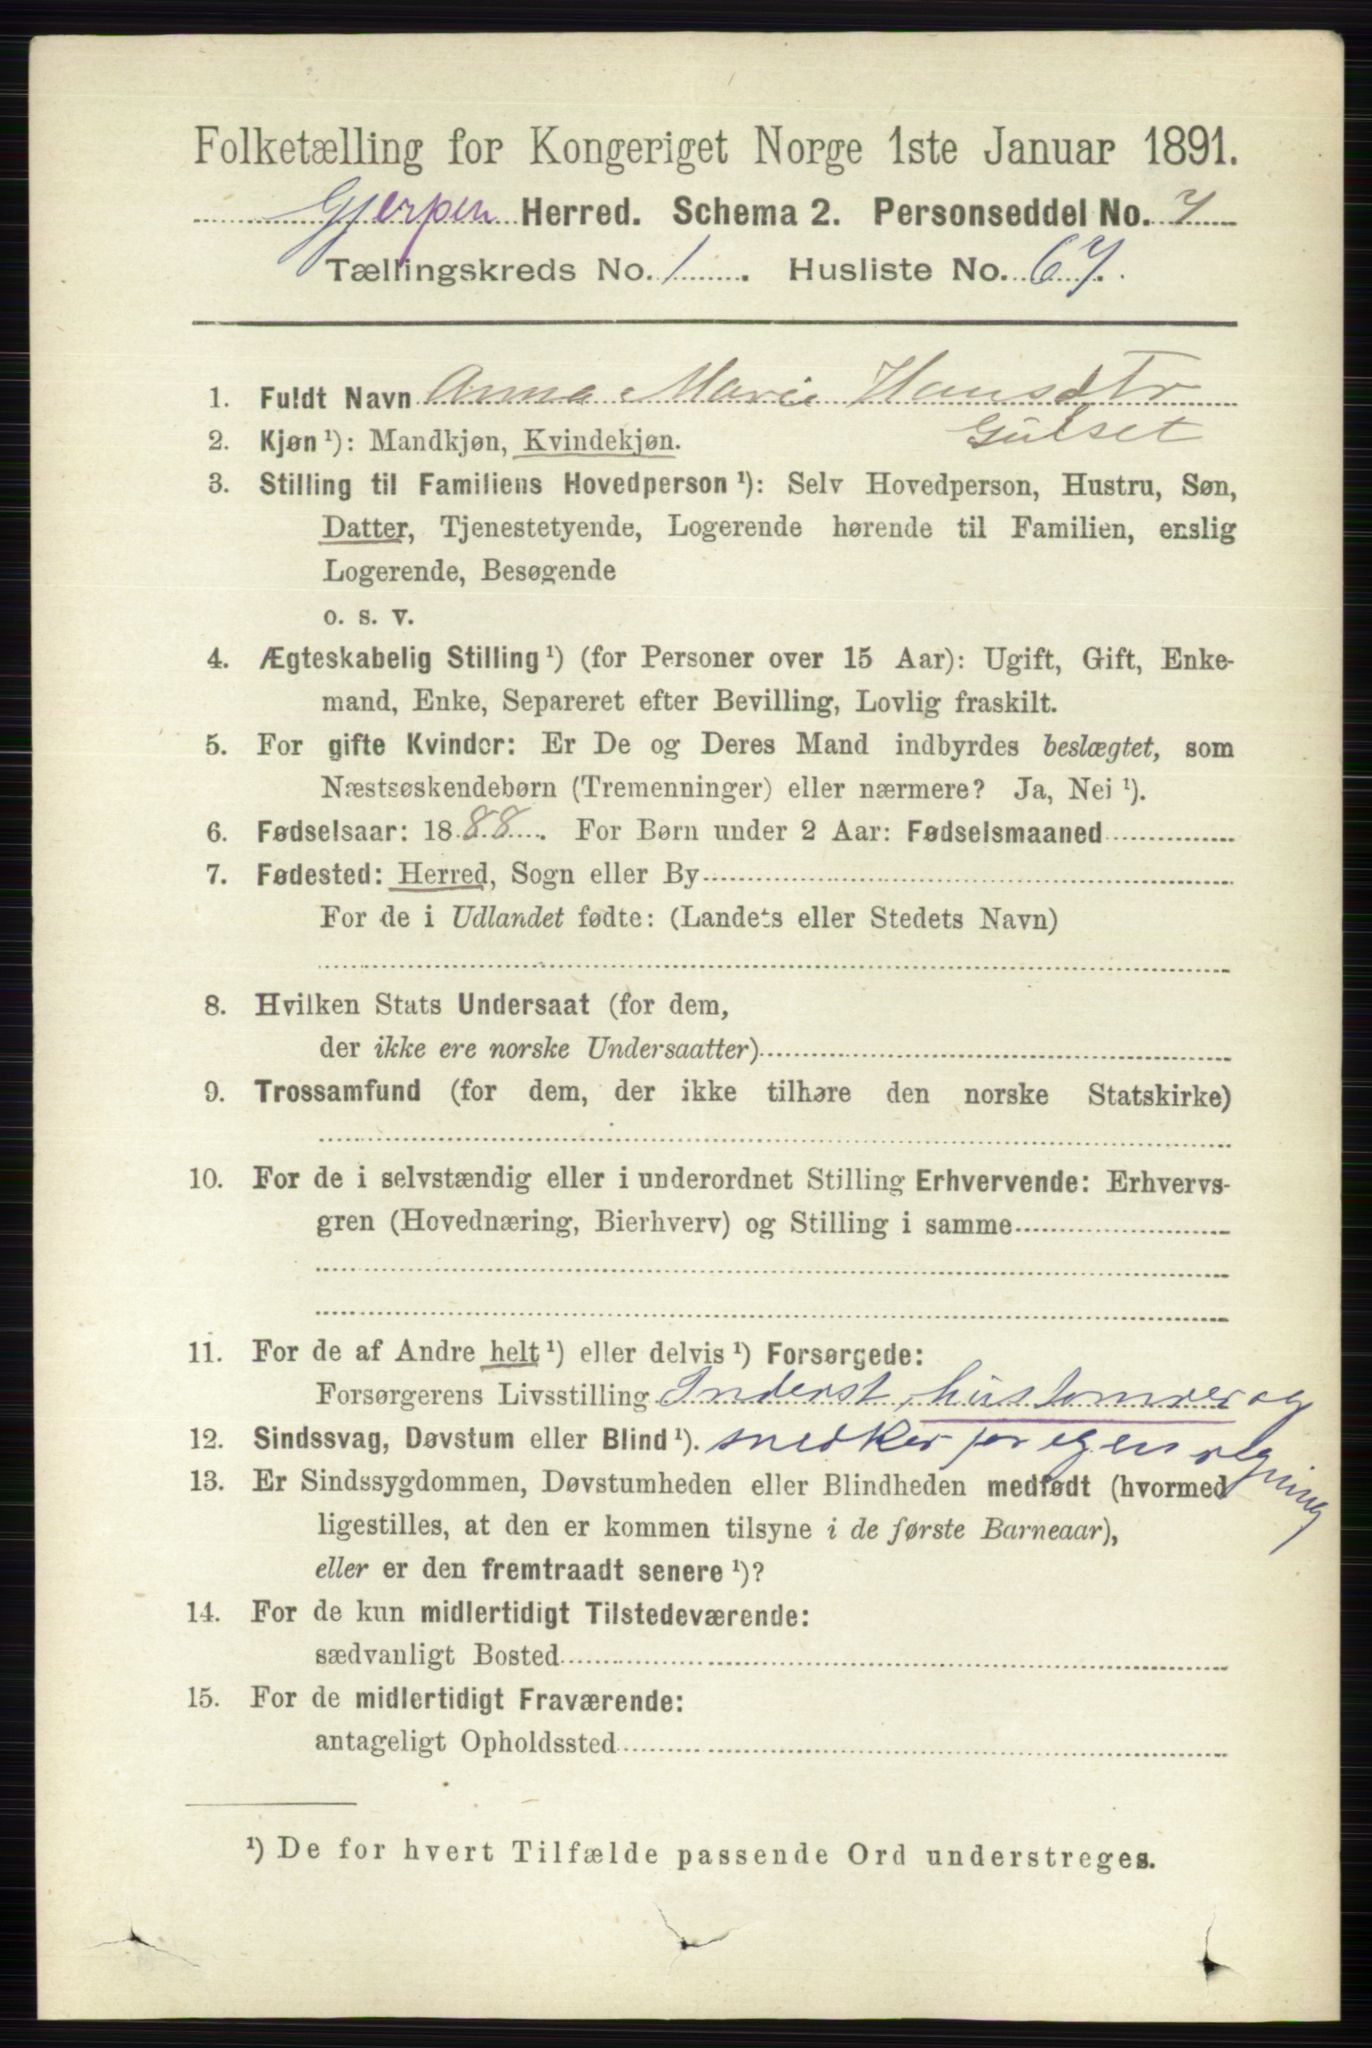 Folketælling for Kongeriget Norge 1ste Januar 1891.
Gjerpen Herred. Schema 2. Personseddel No. 7
Tællingskreds No. 1. Husliste No. 67.
1. Fuldt Navn Anna Marie Hansdtr
Gulset
2. Kjøn ¹): Mandkjøn, Kvindekjøn.
3. Stilling til Familiens Hovedperson ¹): Selv Hovedperson, Hustru, Søn,
Datter, Tjenestetyende, Logerende hørende til Familien, enslig
Logerende, Besøgende
o. s. v.
4. Ægteskabelig Stilling ¹) (for Personer over 15 Aar): Ugift, Gift, Enke-
mand, Enke, Separeret efter Bevilling, Lovlig fraskilt.
5. For gifte Kvinder: Er De og Deres Mand indbyrdes beslægtet, som
Næstsøskendebørn (Tremenninger) eller nærmere? Ja, Nei ¹).
6. Fødselsaar: 1888. For Børn under 2 Aar: Fødselsmaaned
7. Fødested: Herred, Sogn eller By
For de i Udlandet fødte: (Landets eller Stedets Navn)
8. Hvilken Stats Undersaat (for dem,
der ikke ere norske Undersaatter)
9. Trossamfund (for dem, der ikke tilhøre den norske Statskirke)
10. For de i selvstændig eller i underordnet Stilling Erhvervende: Erhvervs-
gren (Hovednæring, Bierhverv) og Stilling i samme
11. For de af Andre helt ¹) eller delvis ¹) Forsørgede:
Forsørgerens Livsstilling Inderst, hustømrer og
12. Sindssvag, Døvstum eller Blind ¹). snedker for egen regning
13. Er Sindssygdommen, Døvstumheden eller Blindheden medfødt (hvormed
ligestilles, at den er kommen tilsyne i de første Barneaar),
eller er den fremtraadt senere ¹)?
14. For de kun midlertidigt Tilstedeværende:
sædvanligt Bosted
15. For de midlertidigt Fraværende:
antageligt Opholdssted
¹) De for hvert Tilfælde passende Ord understreges.